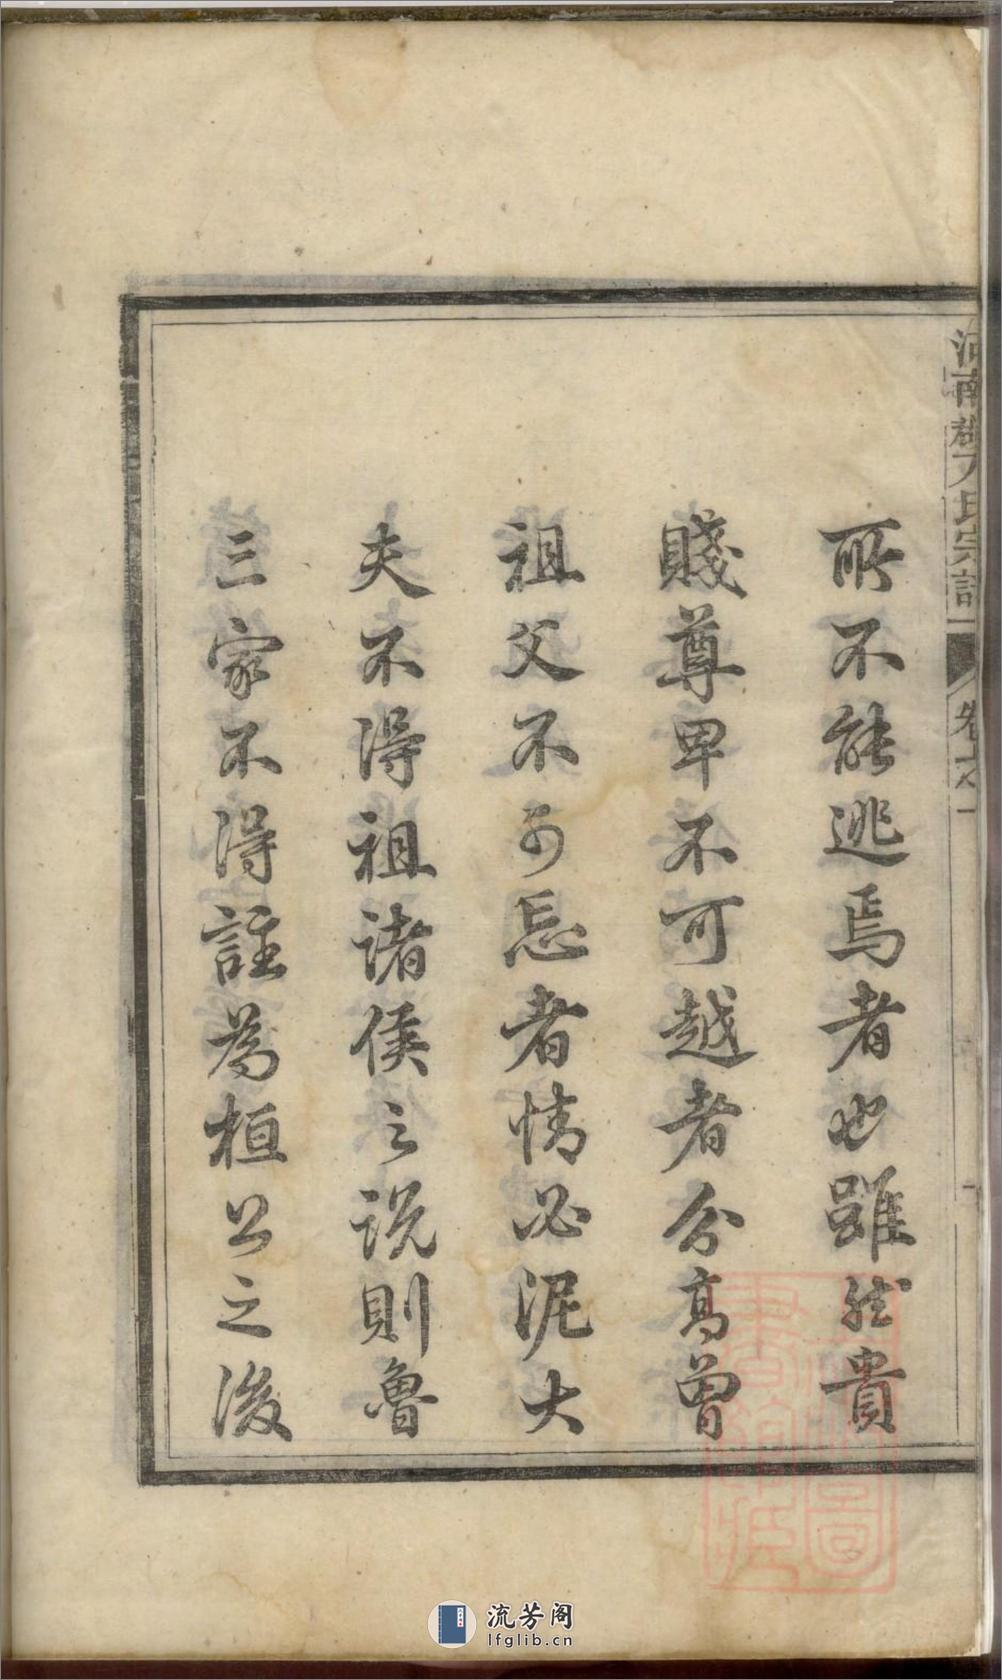 所不能逃焉者也雖然貴
賤尊卑不可越者分高曾
祖父不可忘者情必泥大
夫不得祖諸侯之说則魯
三家不得註為桓公之後
河南郡方氏宗譜
卷之一
流芳阁
lfglib.cn